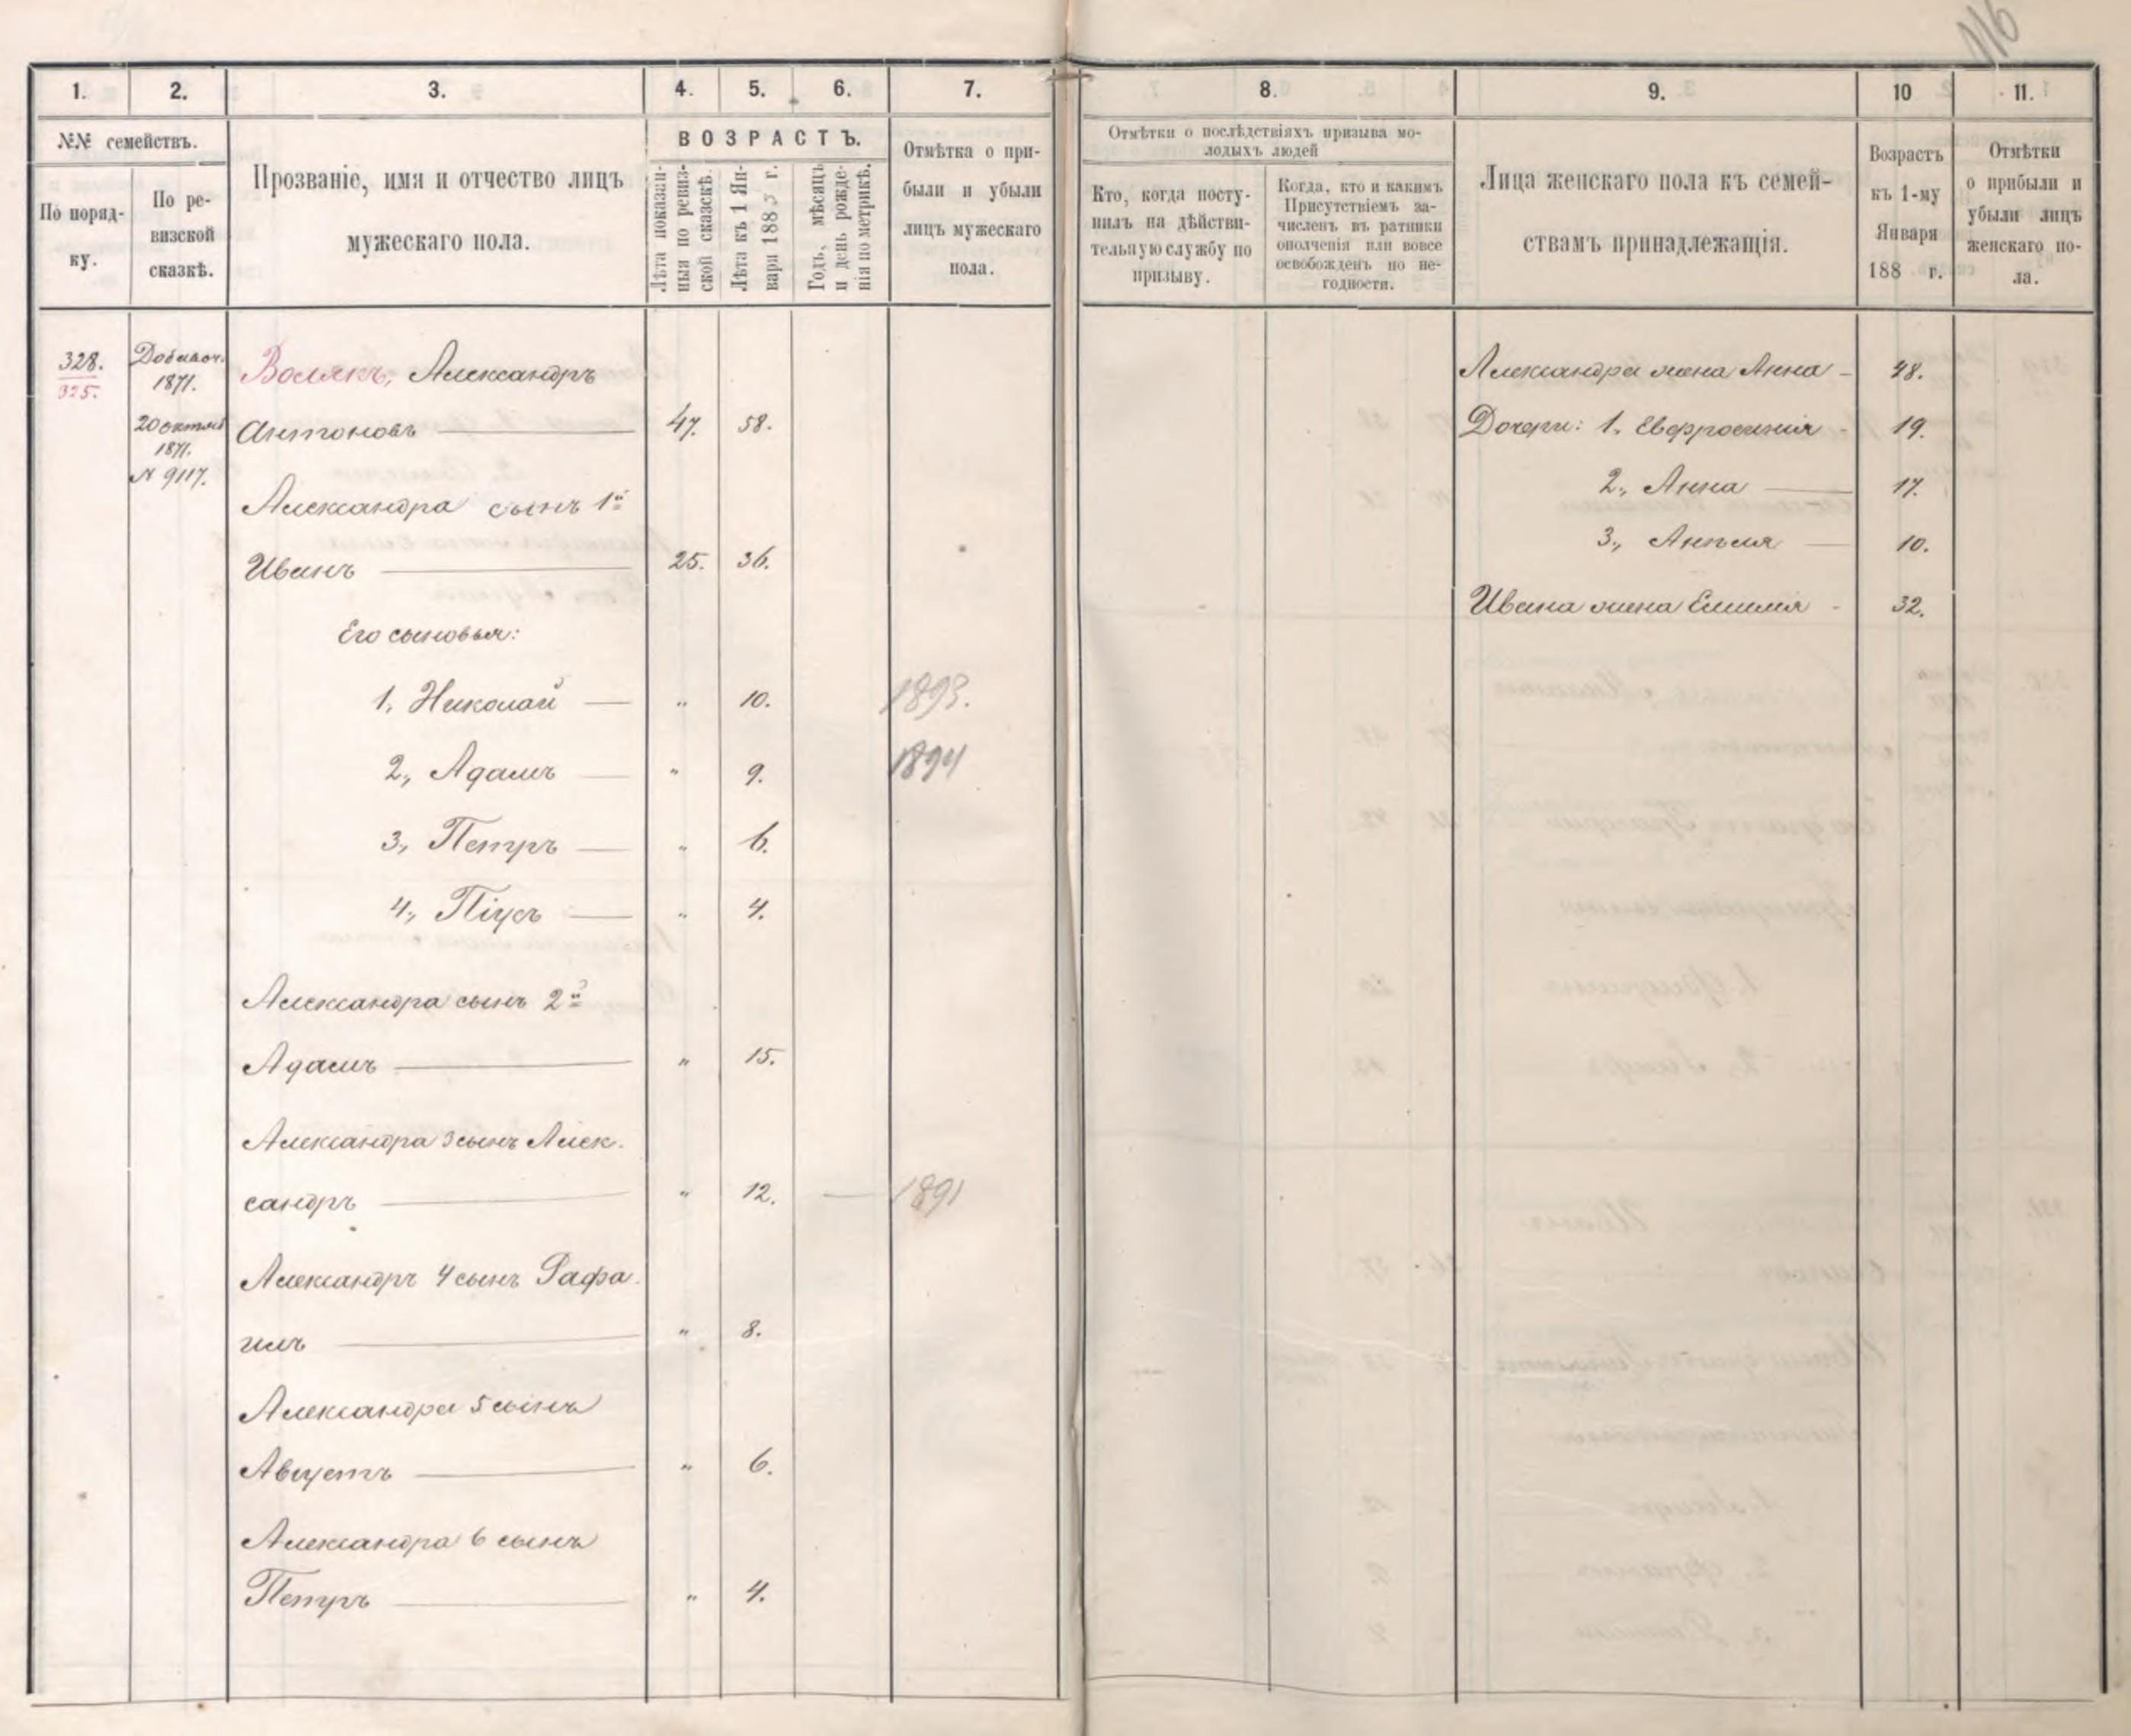 116
1.
2.
3.
4.
5.
6.
7.
№№ семействъ.
По поряд-
ку.
По ре-
визской
сказкѣ.
Прозваніе, имя и отчество лицъ
мужескаго пола.
ВОЗРАСТЪ.
Лѣта показан-
ныя по ревиз-
ской сказкѣ.
Лѣта къ 1 Ян-
варя 1885 г.
Годъ, мѣсяцъ
и день рожде-
нія по метрикѣ.
Отмѣтка о при-
были и убыли
лицъ мужескаго
пола.
328.
325.
Добавоч.
1871.
20 октяб
1871.
№ 9117.
Волякъ, Александръ
Антоновъ 47. 58.
Александра сынъ 1й
Иванъ 25. 36.
Его сыновья:
1, Николай " 10. 1893.
2, Адамъ " 9. 1894
3, Петръ " 6.
4, Піусъ " 4.
Александра сынъ 2й
Адамъ " 15.
Александра 3 сынъ Алек.
сандръ " 12. 1891
Александръ 4 сынъ Рафа.
илъ " 8.
Александра 5 сынъ
Августъ " 6.
Александра 6 сынъ
Петръ " 4.
8.
9.
10
11.
Отмѣтки о послѣдствіяхъ призыва мо-
лодыхъ людей
Кто, когда посту-
пилъ на дѣйстви-
тельную службу по
призыву.
Когда, кто и какимъ
Присутствіемъ за-
численъ въ ратники
ополченія или вовсе
освобожденъ по не-
годности.
Лица женскаго пола къ семей-
ствамъ принадлежащія.
Возрастъ
къ 1-му
Января
188 г.
Отмѣтки
о прибыли и
убыли лицъ
женскаго по-
ла.
Александра жена Анна 48.
Дочери: 1, Евфросинія 19.
2, Анна 17.
3, Анъеля 10.
Ивана жена Емилія 32.